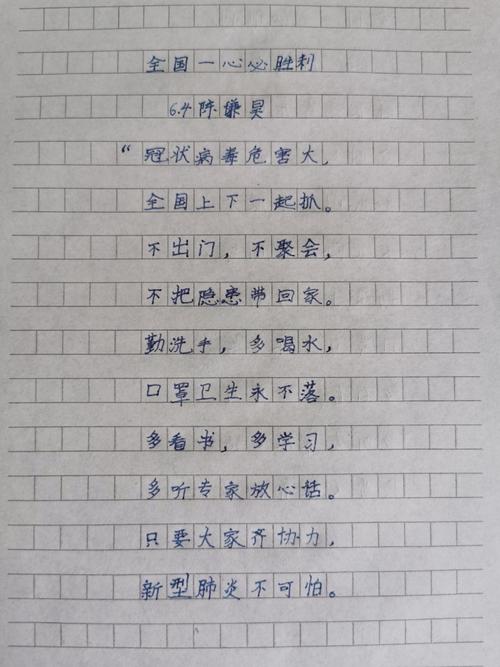 全国一心必胜利
6.4陈谦昊
“冠状病毒危害大,
全国上下一起抓。
不出门，不聚会,
不把隐患带回家。
勤洗手，多喝水,
口罩卫生永不落。
多看书，多学习,
多听专家放心话。
只要大家齐协力,
新型肺炎不可怕。